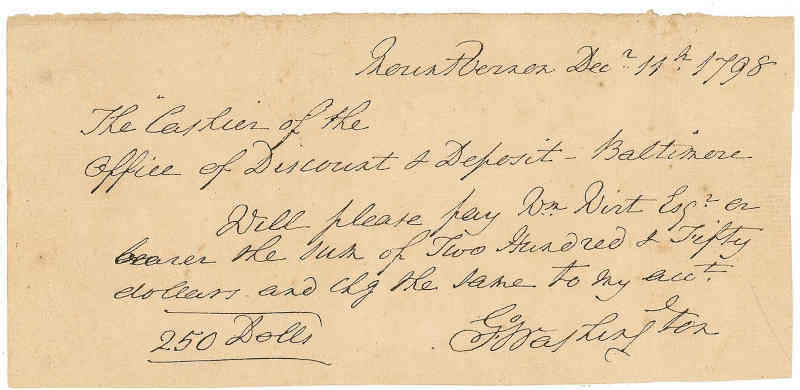 Mount Vernon Decr. 11th. 1798
The Cashier of the
Office of Discount & Deposit - Baltimore
Will please pay Wm Wirt Esqr. or
bearer the sum of Two Hundred & Fifty
dollars and chg the same to my acct.
250 Dolls
Go Washington